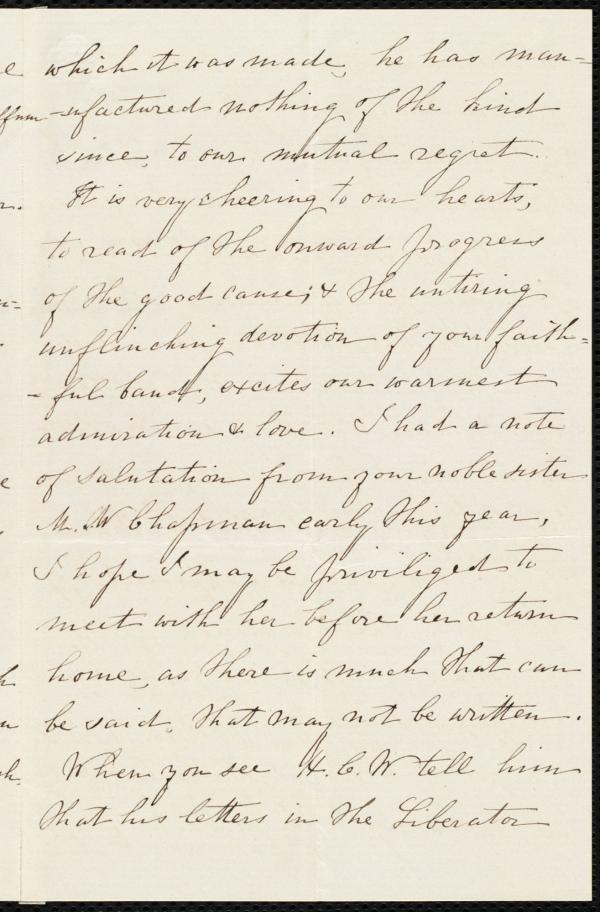 which it was made, he has man=
-ufactured nothing of the kind
since, to our mutual regret.
It is very cheering to our hearts,
to read of the onward progress
of the good cause; & the untiring
unflinching devotion of your faith=
-ful band, excites our warmest
admiration & love. I had a note
of salutation from your noble sister
M. W Chapman early this year,
I hope I may be priviliged to
meet with her before her return
home, as there is much that can
be said, that may not be written.
When you see H. C. W. tell him
that his letters in the Liberator